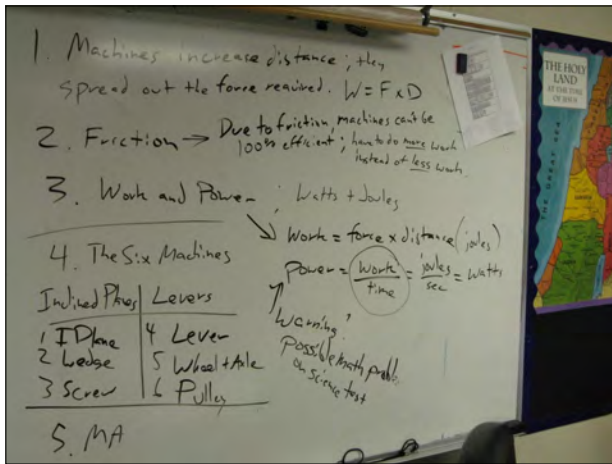 1. Machines increase distance; they
spread out the force required. W = F x D
2. Friction → Due to friction, machines can't be
100% efficient; have to do more work
instead of less work.
3. Work and Power ; Watts + Joules
Work = force x distance (joules)
power = work/time = joules/sec = watts
Warning!
Possible math problem
on science test
4. The Six Machines
Inclined Planes | Levers
1 I Plane | 4 Lever
2 Wedge | 5 Wheel + Axle
3 Screw | 6 Pulley
5. MA
THE HOLY
LAND
AT THE TIME
OF JESUS
THE GREAT SEA